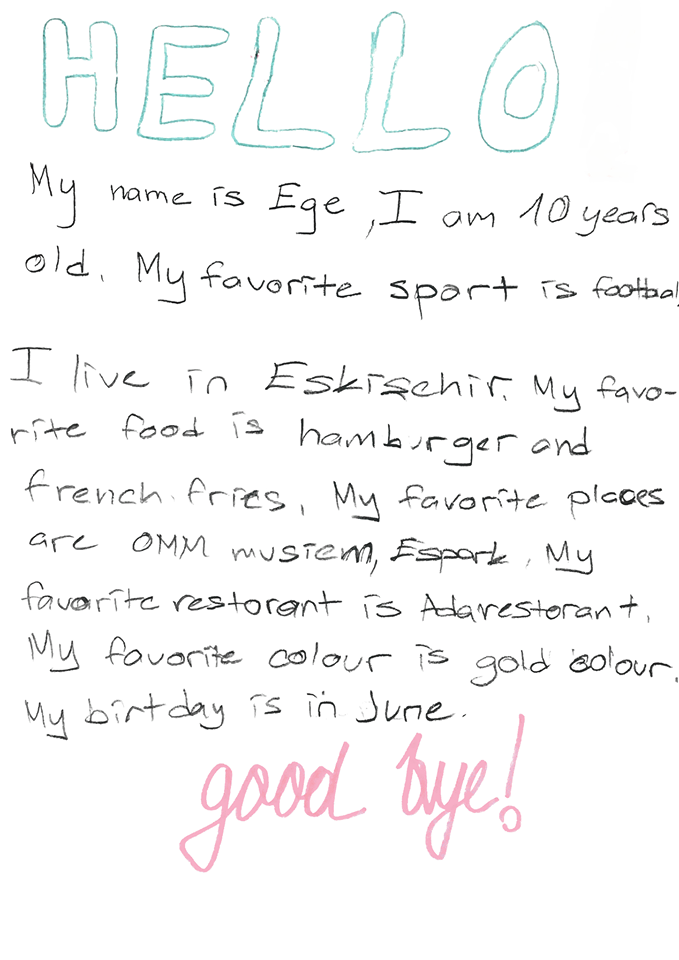 HELLO
My name is Ege, I am 10 years
old. My favorite sport is footbal
I live in Eskişehir. My favo-
rite food is hamburger and
french fries. My favorite places
are OMM musiem, Espark. My
favorite restorant is Adarestorant.
My favorite colour is gold colour.
My birtday is in June.
good bye!